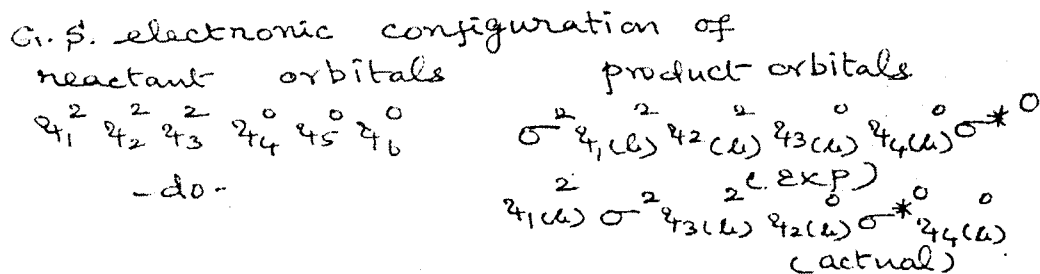 G.S. electronic configuration of
reactant orbitals product orbitals
ψ₁² ψ₂² ψ₃² ψ₄⁰ ψ₅⁰ ψ₆⁰ σ² ψ₁(b)² ψ₂(b)² ψ₃(b)⁰ ψ₄(b)⁰ σ*⁰
-do- (exp)
ψ₁(b)² σ² ψ₃(b)² ψ₂(b)⁰ σ*⁰ ψ₄(b)⁰
(actual)